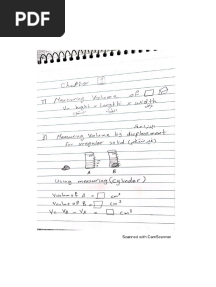 PDF
Chapter 1
1) Measuring Volume of
V= hight x Length x width
2) Measuring Volume by displacement
for irregular solid
A B
Using measuring (cylinder)
Volume of A = cm³
Volume of B = cm³
V = VB - VA = cm³
Scanned with CamScanner